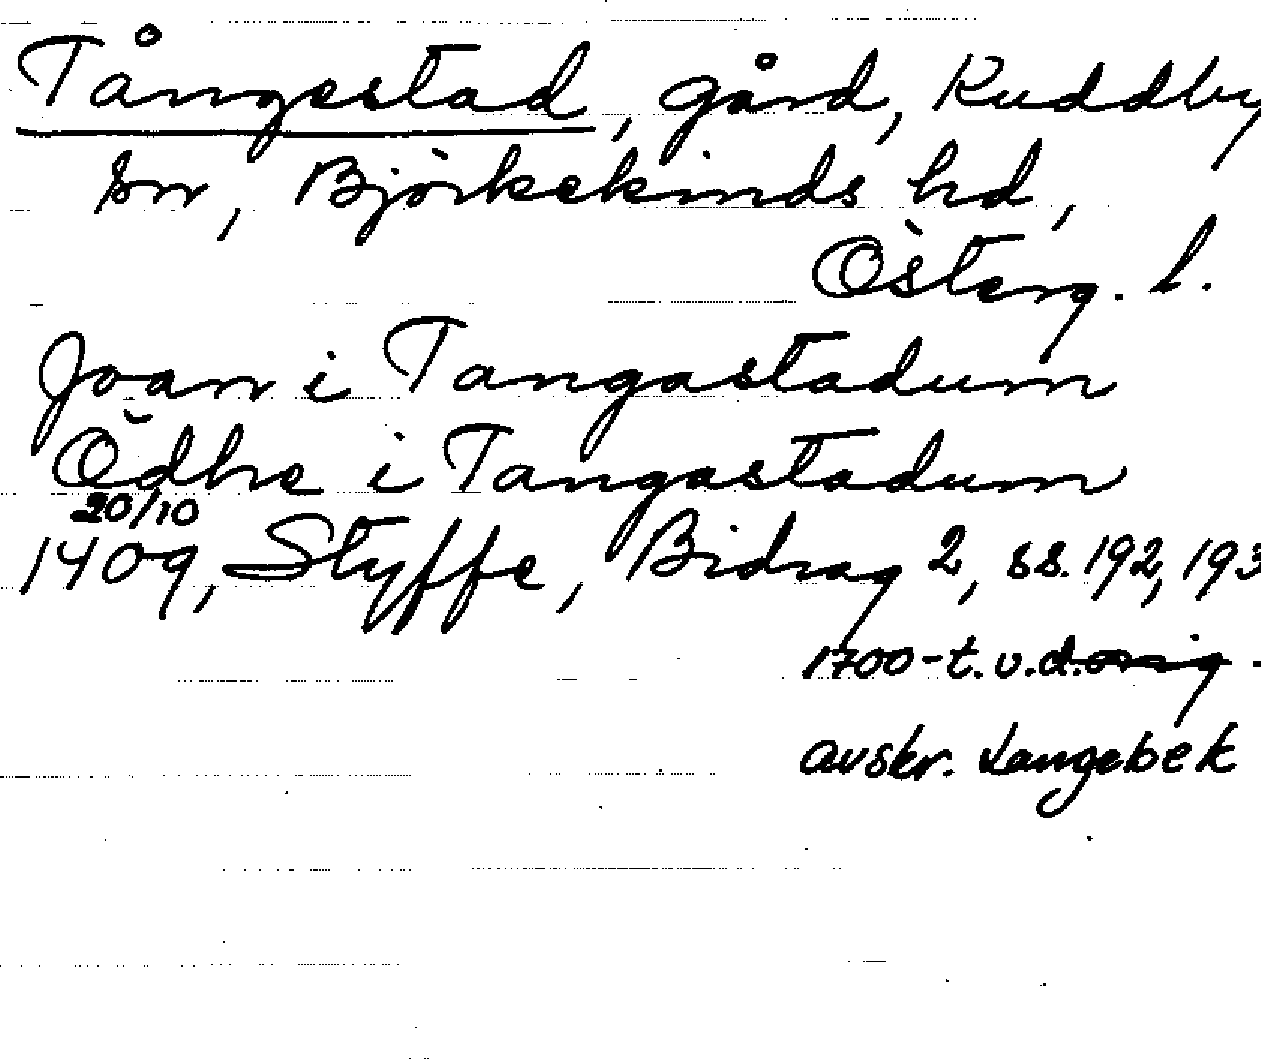 Tångestad, gård, Kuddby
sn, Björkekinds hd,
Österg. l.
Joan i Tangastadum
Ödhe i Tangastadum
20/10
1409, Styffe, Bidrag 2, ss. 192, 193
1700-t. v.d. orig.
avskr. Langebek